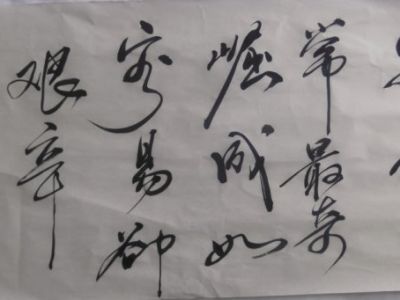 常最奇
崛成如
容易卻
艰辛